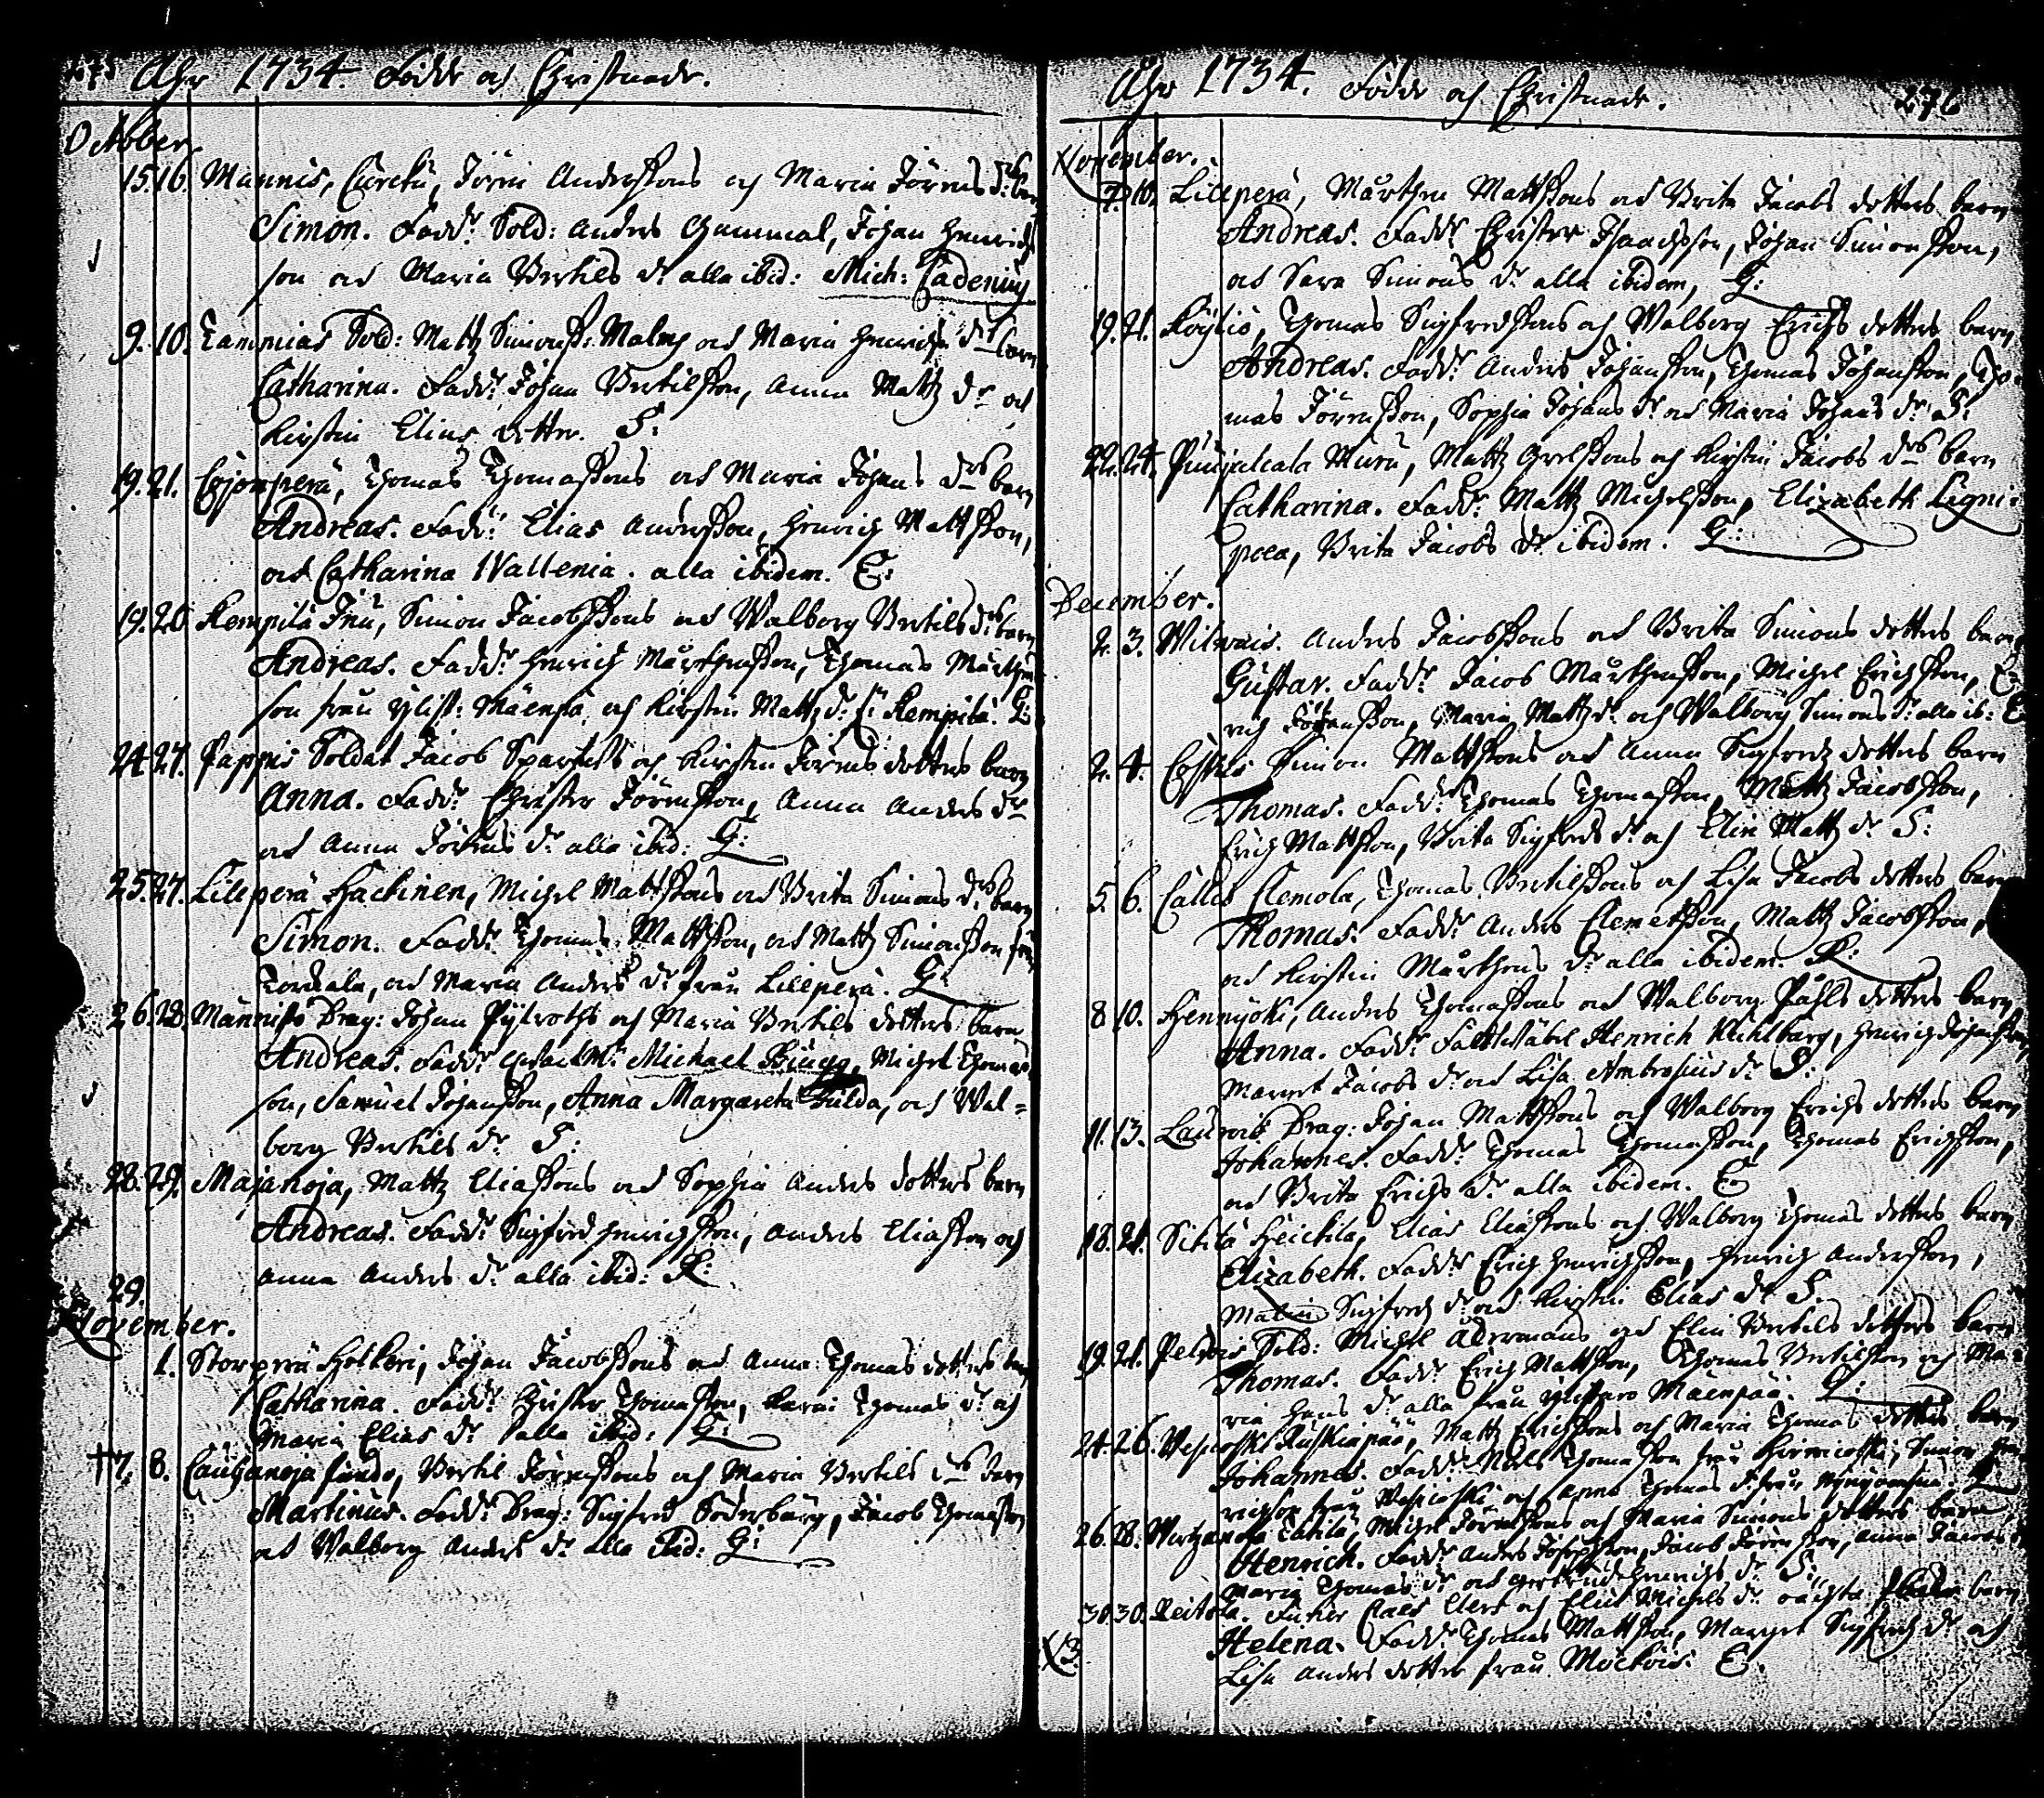 275 Åhr 1734. Födde och Christnade.
October.
15. 16. Mannis, Curckü, Jören Anderssons och Maria Jörens d:rs barn
Simon. Fadd:r Sold: Anders Gammal, Johan Henrichs
son och Maria Bertils d:r alla ibid: Mich: Cadenius
9. 10. Tammias Sold: Matz Simonss: Malms och Maria Henrichs d:rs barn
Catharina. Fadd:r Johan Bertilsson, Anna Matz d:r och
Kirstin Elias dotter. S:
19. 21. Thomas Thomassons och Maria Johans d:rs barn
Andreas. Fadd:r Elias Andersson, Henrich Mattsson,
och Catharina Wallenia. alla ibidem. E:
19. 20. Kempilä Inu, Simon Jacobssons och Walborg Bertils d:rs barn
Andreas. Fadd:r Henrich Mårthensson, Thomas Mårthens
son från Ylist: Mäenpä, och Kirstin Matz d:r Kempilä. G:
24. 27. Pappis Soldat Jacob och Kirstin Jörens dotters barn
Anna. Fadd:r Christer Jörensson, Anna Anders d:r
och Anna Jörens d:r alla ibid: G:
25. 27. Lillperä Hackinen, Michel Mattssons och Brita Simons d:rs barn
Simon. Fadd:r Thomas Mattsson, och Matz Simonsson från
Torckala, och Maria Anders d:r från Lillperä. G:
26. 28. Männistö Drag: Johan och Maria Bertils dotters barn
Andreas. Fadd:r Michael Michel Thomas
son, Samuel Johansson, Anna Margareta och Wal=
borg Bertils d:r S:
28. 29. Majanoja, Mattz Eliassons och Sophia Anders dotters barn
Andreas. Fadd:r Sigfred Henrichsson, Anders Eliasson och
Anna Anders d:r alla ibid: K:
29.
November.
1. Storperä Hölckeri, Johan Jacobssons och Anna Thomas dotters barn
Catharina. Fadd:r Christer Thomasson, Karin Thomas d:r och
Maria Elias d:r alla ibid: G:
† 7. 8. Cauhanoja Bertil Jörenssons och Maria Bertils d:rs barn
Martinus. Fadd:r Drag: Sigfred Söderburg, Jacob Thomasson
och Walborg Anders d:r alla ibid: G:
Åhr 1734. Födde och Christnade. 276
November.
7. 10. Lillperä, Mårthen Mattssons och Brita Jacobs dotters barn
Andreas. Fadd:r Christer Isaachsson, Johan Simonsson,
och Sara Simons d:r alla ibidem, G:
19. 21. Köyliö, Thomas Sigfredssons och Walborg Erichs dotters barn
Andreas. Fadd:r Anders Johansson, Thomas Johansson, Tho-
mas Jörensson, Sophia Johans d:r och Maria Johans d:r S:
22. 24. Punjalcala Muru, Mattz Grelssons och Kirstin Jacobs d:rs barn
Catharina. Fadd:r Mattz Michelsson, Elizabeth Ligni=
poea, Brita Jacobs d:r ibidem. G:
December.
2. 3. Wilwais. Anders Jacobssons och Brita Simons dotters barn
Gustav. Fadd:r Jacob Mårthensson, Michel Erichsson,
rich Johansson, Maria Mattz d:r och Walborg Simons d:r alla ib: E
2. 4. Simon Mattssons och Anna Sigfredz dotters barn
Thomas. Fadd:r Thomas Thomasson, Mattz Jacobsson,
Erich Mattsson, Brita Sigfreds d:r och Elin Mattz d:r S:
5. 6. Callis Clemola, Thomas Bertilssons och Lisa Jacobs dotters barn
Thomas. Fadd:r Anders Clemetsson, Mattz Jacobsson,
och Kirstin Mårthens d:r alla ibidem. K:
8. 10. Hennijoki, Anders Thomassons och Walborg Påhls dotters barn
Anna. Fadd:r Henrich Henrich Johansson
Margret Jacobs d:r och Lisa Ambrosius d:r S:
11. 13. Laurois Drag: Johan Mattssons och Walborg Erichs dotters barn
Johannes. Fadd:r Thomas Thomasson, Thomas Erichsson,
och Brita Erichs d:r alla ibidem. E
18. 21. Sikilä Heickilä, Elias Eliassons och Walborg Thomas dotters barn
Elizabeth. Fadd:r Erich Henrichsson, Henrich Andersson,
Malin Sigfreds d:r och Kirstin Elias d:r S.
19. 21. Sold: Michel Åkermans och Elin Bertils dotters barn
Thomas. Fadd:r Erich Mattsson, Thomas Bertilsson och Ma=
ria Hans d:r alla från Ylistaro Mäenpää. G:
24. 26. Wespicoski Ruskiapää, Mattz Erichssons och Maria Thomas dotters barn
Johannes. Fadd:r Thomasson från Simon Hen
richson från Wespicoski, och Anna Thomas d:r från
26. 28. Wirtzanoja Eskilä, Michel Jörenssons och Maria Simons dotters barn
Henrich. Fadd:r Anders Josephsson, Jacob Jörensson, Anna Jacobs d:r
Maria Thomas d:r och Gertrud Henrichs d:r S:
30. 30. Keitola. Claes och Elin Michels d:r barn
Helena. Fadd:r Thomas Mattsson, Margret Sigfreds d:r och
Lisa Anders dotter från E.